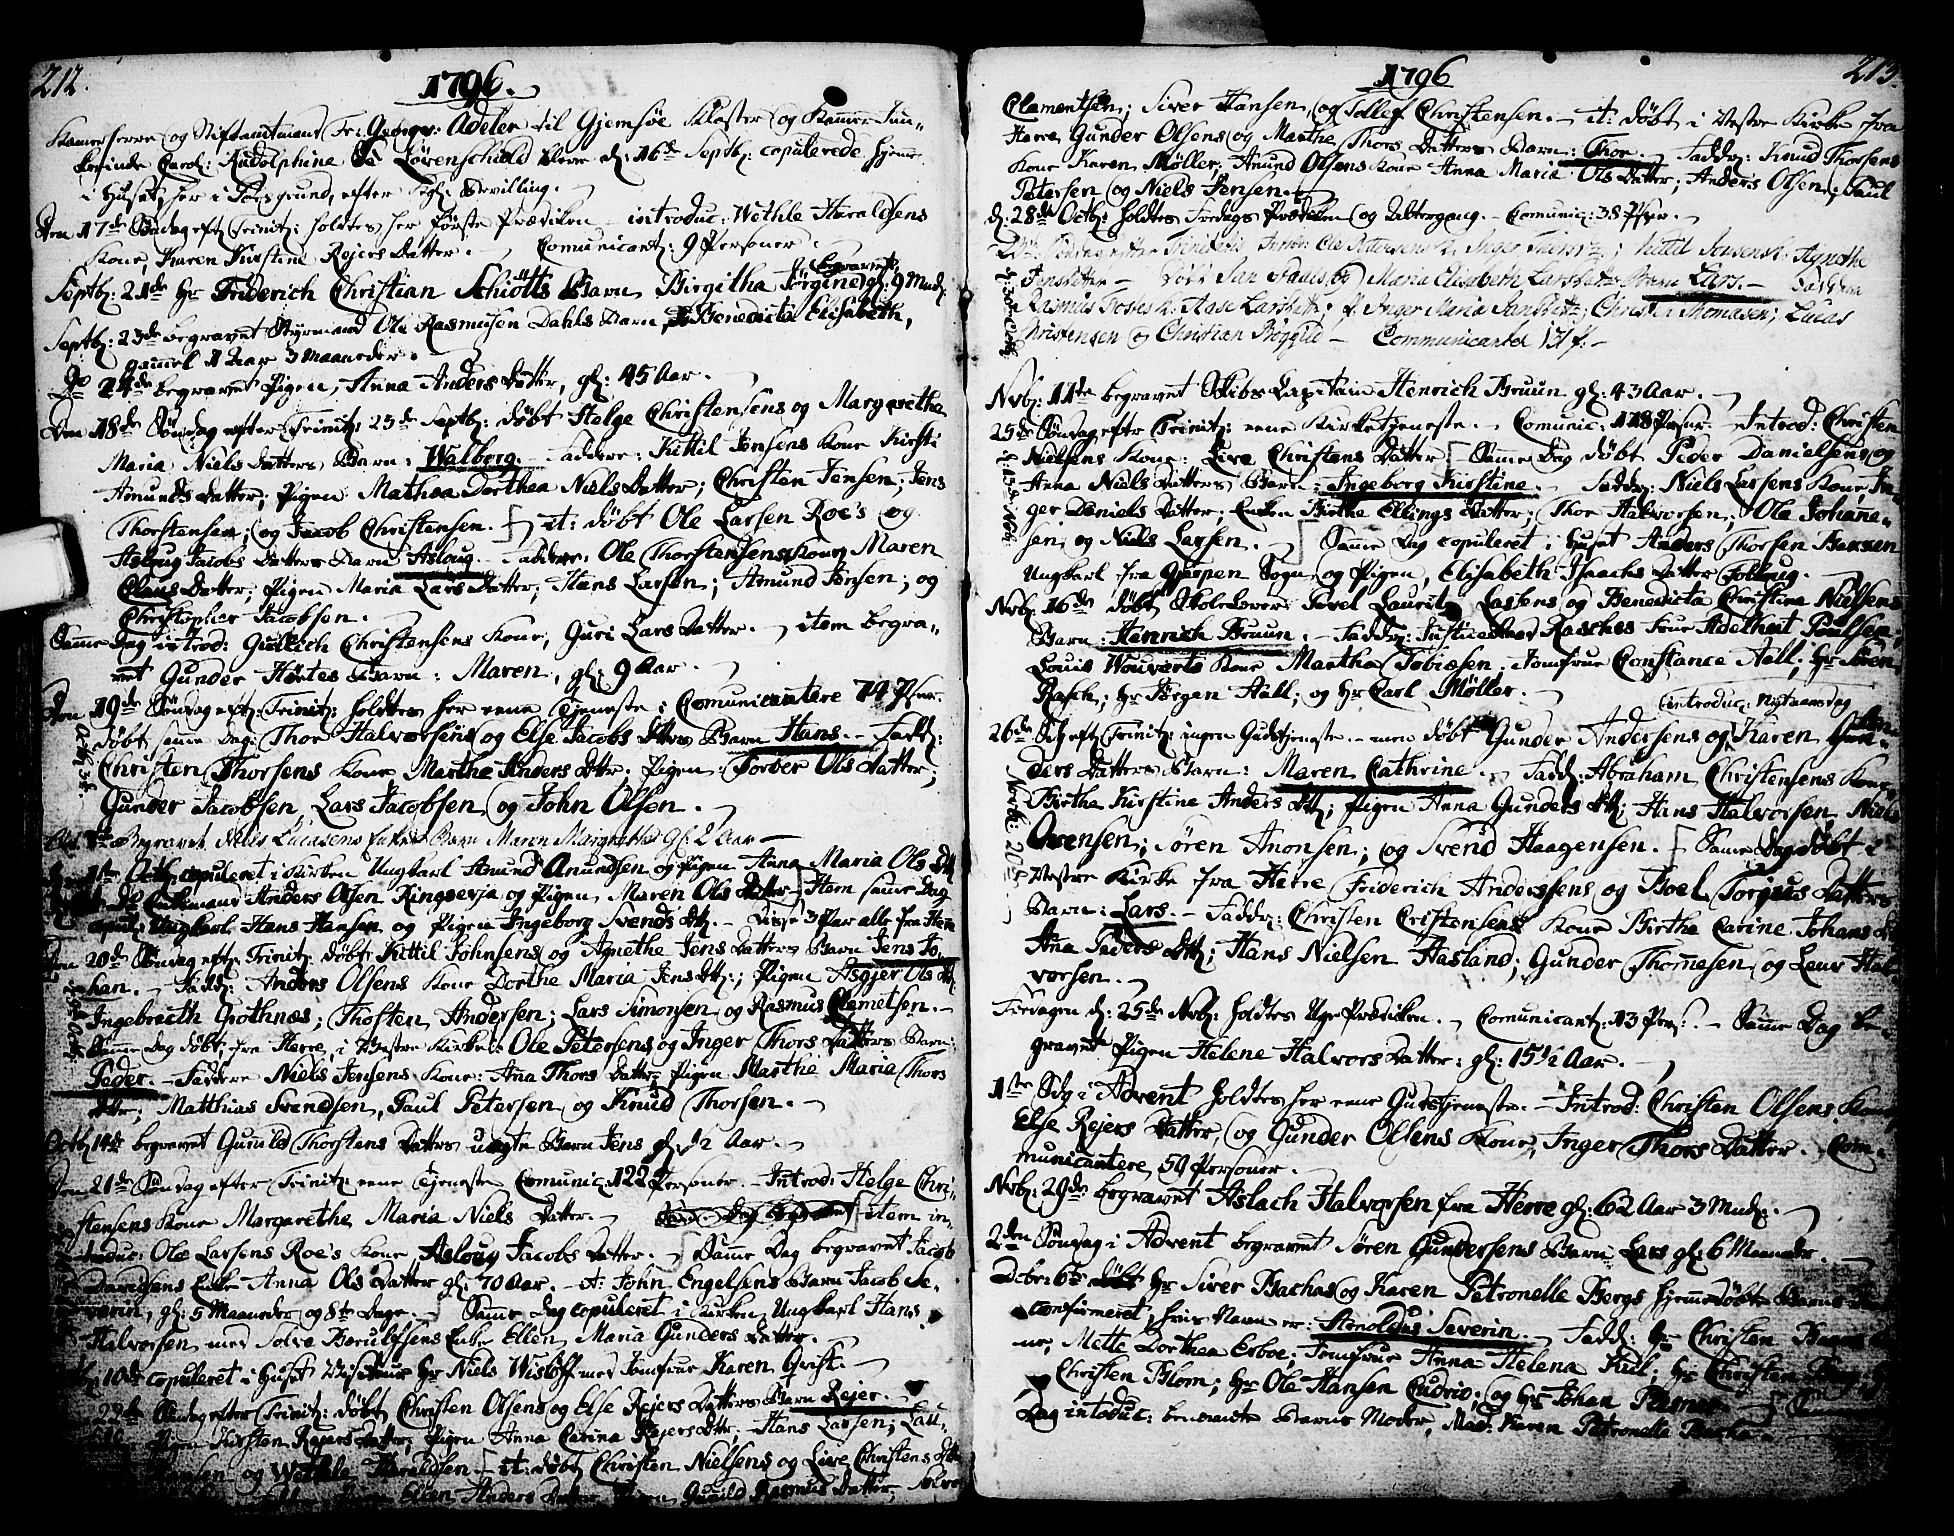 212.
1796.
Kamerherre og Stiftamtmand Fr: Georg: Adeler til Gjemsøe Kloster og
Carol: Rudolphine de Löwenschiold bleve d: 16de Septb: copulerede hjeme
i Huset, her i Porsgrund, efter Kgl: Bevilling.
Den 17de Søndag eft: Trinit: holdtes her første Prædiken introduc: Wethle Haraldsens
Kone, Karen Kirstine Rejers Datter. Comunicant: 9 Personer.
Septb: 21de Hr Friderich Christian Schiötts Barn Birgitha Jörgine gl: 9 Mndr. begravet
Septb: 23de begravet Styrmand Ole Rasmusen Dahls Barn, Benedicta Elisabeth,
gammel 1 Aar 3 Maaneder.
do 24de begravet Pigen, Anna Anders Datter, gl: 45 Aar.
Den 18de Søndag efter Trinit: 25de Septb: døbt Helge Christensens og Margarethe
Maria Niels Datters Barn: Walberg. Faddere: Kittil Jensens Kone Kirsti
Amunds Datter; Pigen Mathea Dorthea Niels Datter; Christen Jensen; Jens
Thorstensen; og Jacob Christensen. it: døbt Ole Larsen Roe's og
Asloug Jacobs Datters Barn Asloug. Faddere: Ole Thorstensens Kone Maren
Claus Datter; Pigen Maria Lars Datter; Hans Larsen; Amund Jensen; og
Christopher Jacobsen.
Samme Dag introd: Gullich Christensens Kone, Guri Lars Datter. item begra-
vet Gunder Hörtes Barn: Maren, gl: 9 Aar.
Den 19de Søndag eft: Trinit: holdtes her eene Tjeneste: Comunicantere 74 Psner.
døbt same Dag: Thor Halvorsens og Else Jacobs Dtters Barn Hans. Fadd:
Christen Thorsens Kone Marthe Anders Dtter; Pigen: Torber Ols Datter;
Gunder Jacobsen, Lars Jacobsen og John Olsen.
Begravet Niels Lucasens Barn Maren Margrethe gl: 2 Aar
copuleret i Kirken Ungkarl Amund Amundsen og Pigen Anna Maria Ols Dtt
Enkemand Anders Olsen Ringsevja og Pigen Maren Ols Datter. Item same Dag
Ungkarl Hans Hansen og Pigen Ingeborg Svends Dtt. disse 3 Par alle fra Herre
Den 20de Søndag eft: Trinit: døbt Kittil Johnsens og Agnethe Jens Datters Barn Jens Jo-
han. Fadd: Anders Olsens Kone Dorthe Maria Jens Dtt.; Pigen Asgjer Ols Dtt
Ingebreth Grothnæs; Thosten Andersen; Lars Simonsen og Rasmus Clemetsen.
Samme Dag døbt, fra Herre, i Vestre Kirke: Ole Petersens og Inger Thors Datters Barn:
Peder. Faddere Niels Jensens Kone: Ana Thors Datter, Pigen Marthe Maria Thors
Dtr; Matthias Svendsen, Paul Petersen og Knud Thorsen.
Octb: 14de begravet Gunild Thorstens Datters uægte Barn Jens gl: 1/2 Aar.
Den 21de Søndag efter Trinit: eene Tjeneste Comunic: 122 Personer. Introd: Helge Chri-
stensens Kone Margarethe Maria Niels Datter. item in-
troduc: Ole Larsens Roe's Kone Asloug Jacobs Datter. Samme Dag begravet Jacob
Davidsens Enke Anna Ols Datter gl: 70 Aar. it: John Engelsens Barn Jacob Se-
verin, gl: 5 Maaneder og 8te Dage. Samme Dag copuleret i Kirken Ungkarl Hans
Halvorsen med Enke Ellen Maria Gunders Datter.
10de copuleret i Huset Hr Niels Wisløff med Jomfrue Karen
22de Søndag efter Trinit: døbt Christen Olsens og Else Rejers Datters Barn Rejer.
Pigen Kirsten Rejers Datter, Pigen Anna Carina Rejers Dtter; Hans Larsen; Lau-
og Wethle Haraldsen it: døbt Christen Nielsens og Live Christens Dtt
Anders Datter Gunild Rasmus Datter,
1796
213.
Clementsen; Siver Hansen, og Tollef Christensen. it: døbt i Vestre Kirke fra
Herre Gunder Olsens og Marthe Thors Datters Barn: Thor. Fadd: Knud Thorsens
Kone Karen Møller; Amund Olsens Kone Anna Maria Ols Datter; Anders Olsen; Paul
Petersen og Niels Jensen.
d: 28de Octb: holdtes Fredags Prædiken og Altergang. Comunic: 38 Psner.
d: 30te Octb:
Søndag efter Trinitatis Ole Petersens K. Inger; Kittil Jonsens K. Agnethe
Jensdatter døbt Jan Paulsens og Maria Elisabeth Larsdatters Barn Lars. Faddere
Rasmus K. Aase Larsdatter; P. Inger Maria; Christen Thomasen; Lucas
Christensen og Christian Communicanter 131 P.
Nvb: 11te begravet Skibs Capitain Henrich Bruun gl: 43 Aar.
d: 13de Nvb:
25de Søndag efter Trinit: eene Kirketjeneste. Comunic: 118 Psner. Introd: Christen
Nielsens Kone: Live Christens Datter Samme Dag døbt Peder Danielsens og
Anna Niels Datters Barn: Ingeborg Kirstine. Fadd: Niels Larsens Kone, In-
ger Daniels Datter; Enken Birthe Ellings Datter; Thor Halvorsen; Ole Johane-
sen; og Niels Larsen. Samme Dag copuleret i Huset Anders Thorsen
Ungkarl fra Gjerpen Sogn og Pigen, Elisabeth Isaachs Datter
Nvb: 16de døbt Skoleholder Povel Laurits Lassens og Benedicta Christine Nielsens
Barn: Henrich Bruun. Fadd: Justiceraad Rasches Frue Adelheit Poulsen;
Louis Wouverts Kone Martha Tobiesen; Jomfrue Constance Aall; Hr Sören
Rasch; Hr Jørgen Aall; og Hr Carl Møller.
introduc: Nytaarsdag
Novb: 20de
26de Sdg eft: Trinit: ingen Gudstjeneste. men døbt Gunder Andersens og Karen Gun-
ders Datters Barn: Maren Cathrine. Fadd: Abraham Christensens Kone,
Birthe Kirstine Anders Dtt; Pigen Anna Gunders Dtt; Hans Halvorsen, Niels
Ovensen; Sören Anonsen; og Svend Haagensen. Samme Dag døbt i
Vestre Kirke fra Herre Friderich Anderssens og Boel Torgius Datters
Barn: Lars. Fadd: Christen Cristensens Kone Birthe Carine Johans D
Ana Peders Dtt; Hans Nielsen Aasland; Gunder Thomesen, og Leur Hal-
vorsen.
Fredagen d: 25de Nvb: holdtes Uge Prædiken. Comunicant: 13 Pers: Samme Dag be-
gravet Pigen Helene Halvors Datter: gl: 15 1/2 Aar.
1ste Sdg i Advent holdtes her eene Gudstjeneste. Introd: Christen Olsens Kone,
Else Rejers Datter, og Gunder Olsens Kone, Inger Thors Datter. Com-
municantere, 50 Personer.
Nvb: 29de begravet Aslach Halvorsen fra Herre gl: 62 Aar 3 Mndr.
2den Søndag i Advent begravet Sören Gundersens Barn Lars gl: 6 Maaneder.
Dcbr: 6te Hr Siver Bachas og Karen Petronelle Bergs hjemedøbte Barns
confirmeret, hvis Navn er: Arnoldus Severin. Fadd: Hr Christen
ne, Mette Dorthea Erboe; Jomfrue Anna Helena Kiil; Hr Christen
Christen Blom; Hr Ole Hansen; og Hr Johan
Dag introduc: benævnte Barns Moder, Mad: Karen Petronella Bacha.